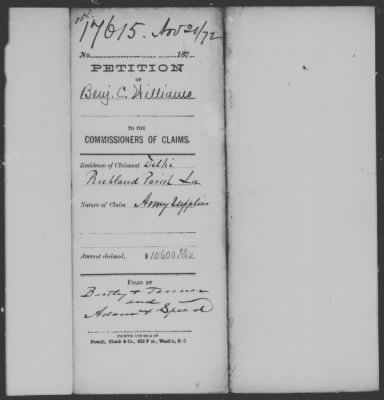 17615. Nov 21/72
No. 187
PETITION
OF
Benj. C. Williams
TO THE
COMMISSIONERS OF CLAIMS.
Residence of Claimant Delhi
Richland Parish La
Nature of Claim, Army Supplies
Amount claimed, $10600
FILED BY
and
Adams & Speed
PRINTED AND SOLD BY
Powell, Ginck & Co., 632 F st., Wash'n, D. C